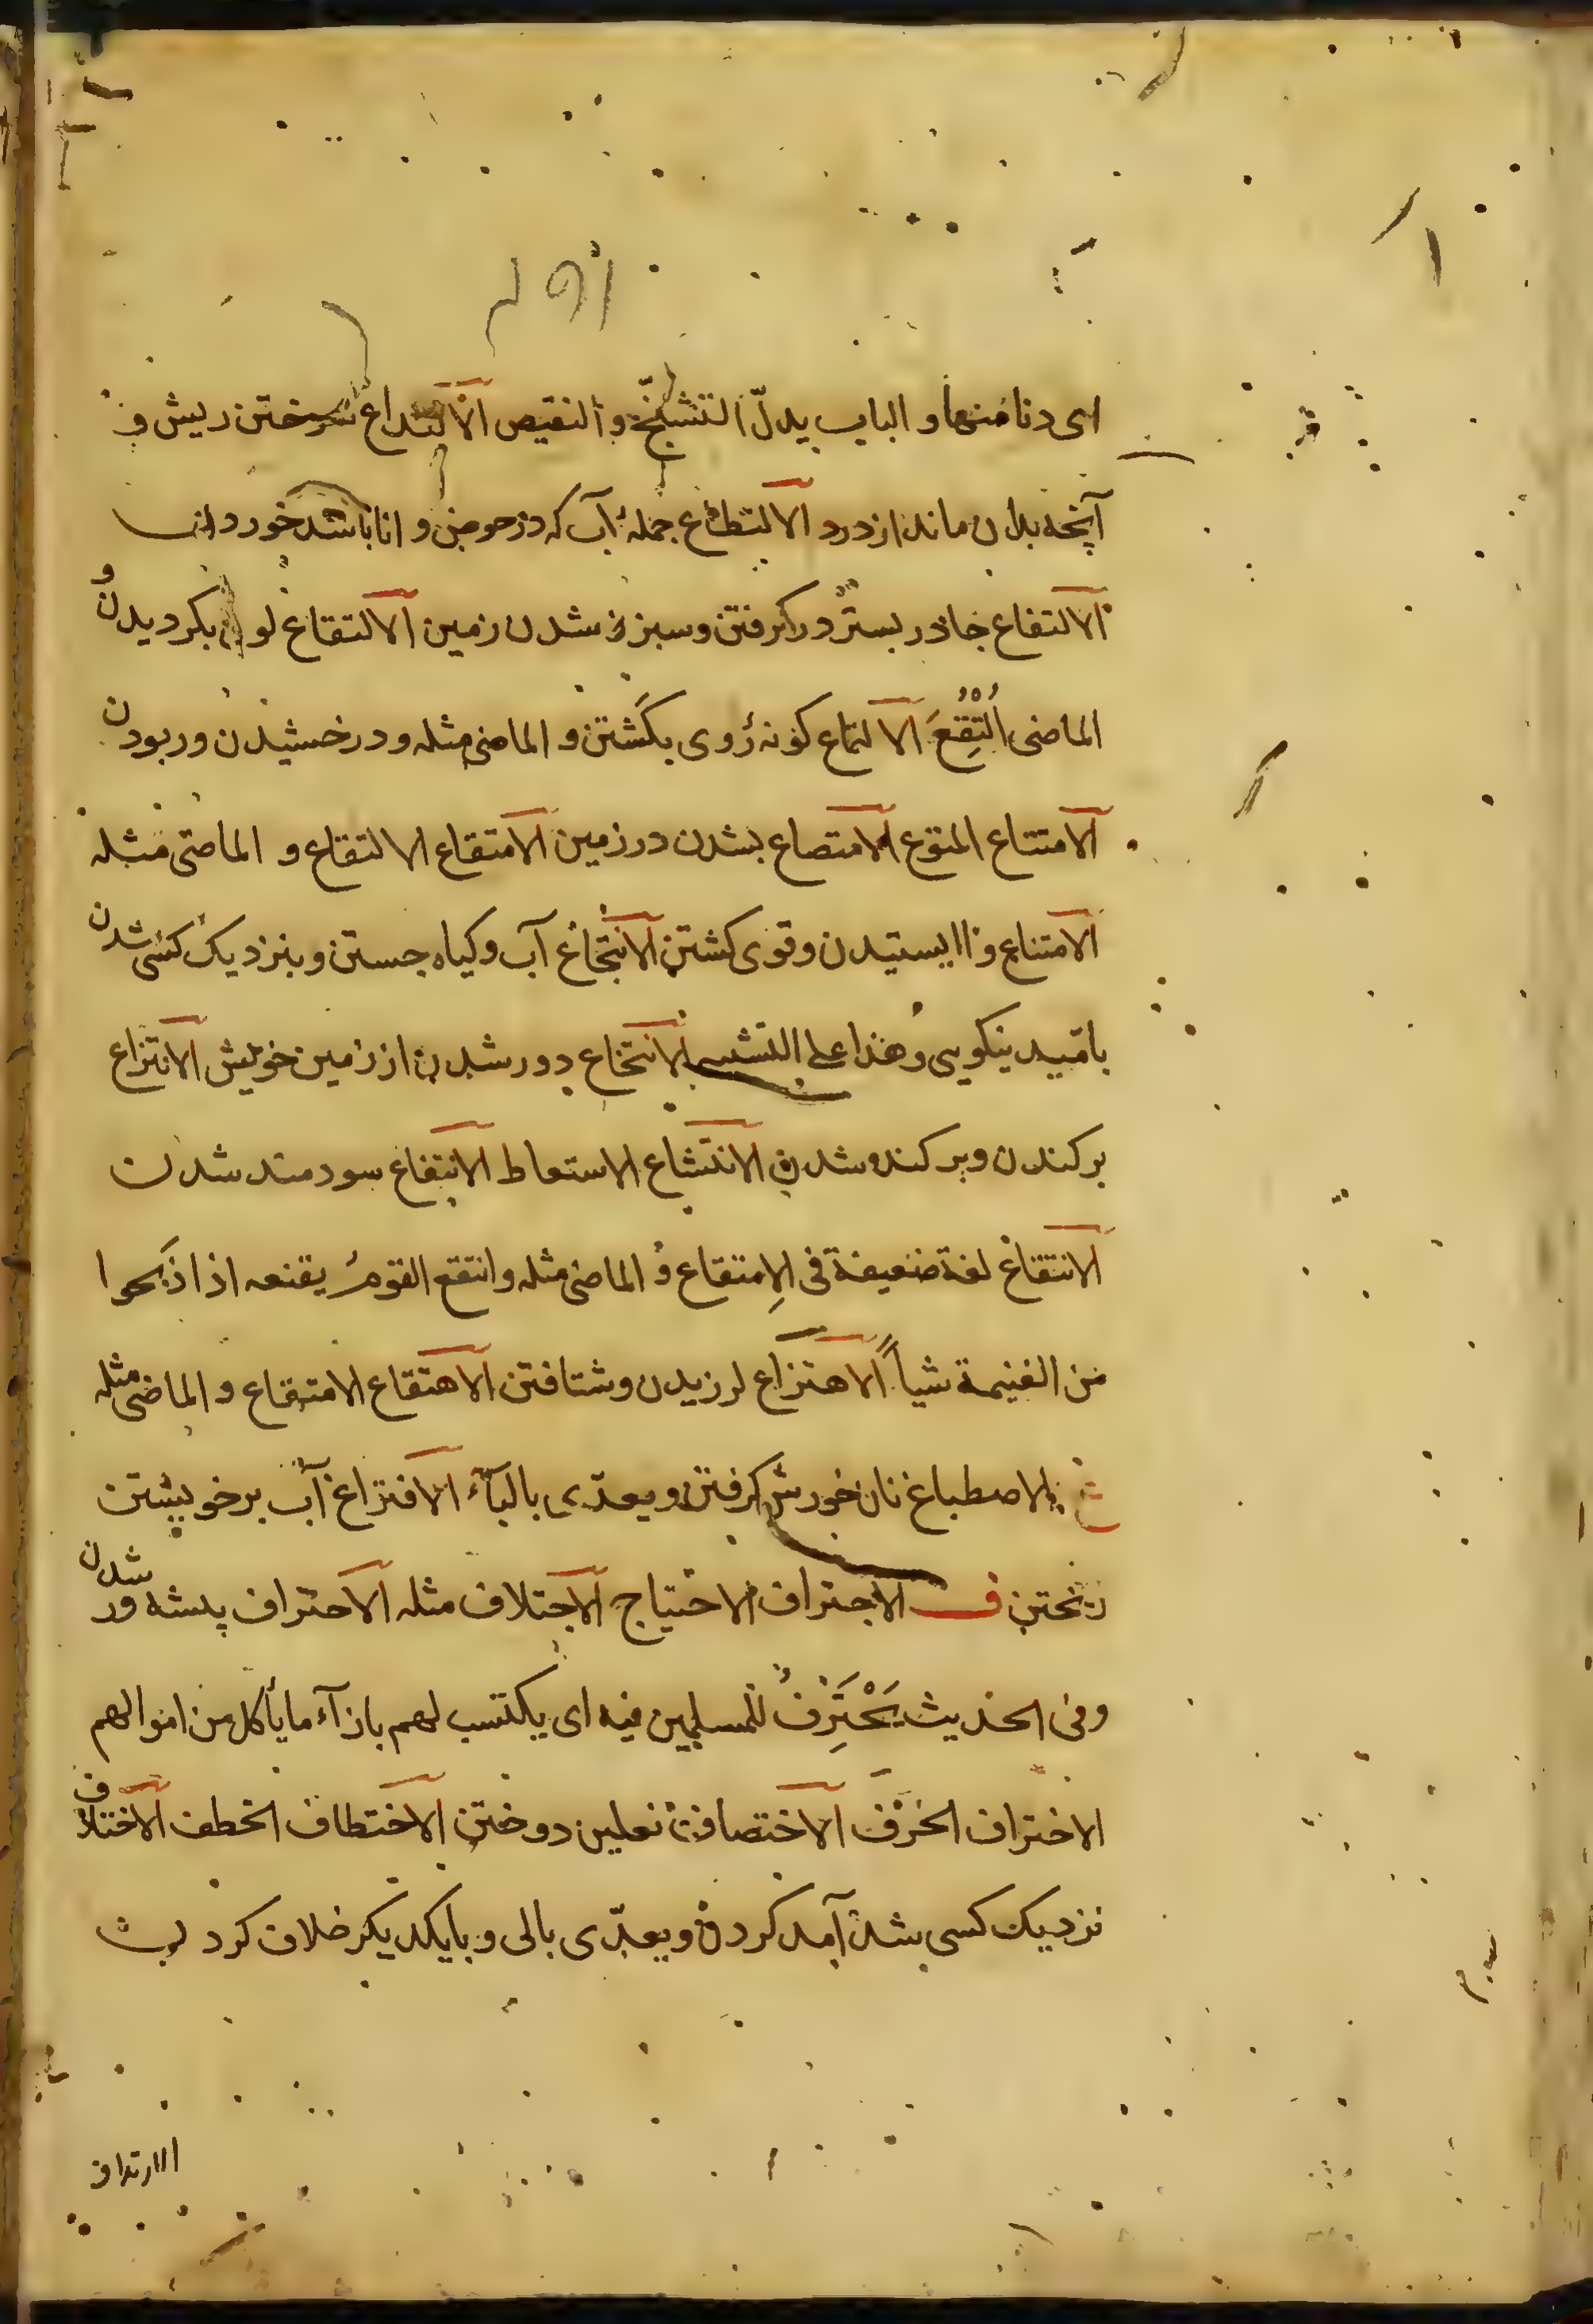 ای دنا منها و الباب یدلّ التشنّج و النقیص الالتداع سوختن ریش و
آنچه بدان ماند از درد الالتطاع جملهٔ آب که در حوض و انا باشد خوردن
الالتفاع جاذر بسر در کرفتن و سبز شدن زمین الالتقاع لون بکردیدن و
الماضی اُلْتُقِعَ الالتماع کونه روی بکشتن و الماضی مثله و درخشیدن و ربودن
الامتتاع المتوع الامتصاع بشدن در زمین الامتقاع الالتقاع و الماضی مثله
الامتناع وا ایستیدن و قوی کشتن الانتجاع آب و کیاه جستن و بنزدیک کسی شدن
بامید نیکویی و هذا علی التشبیه الانتخاع دور شدن از زمین خویش الانتزاع
برکندن و برکنده شدن الانتشاع الاستعاط الانتفاع سودمند شدن
الانتقاع لغة ضعیفة فی الامتقاع و الماضی مثله و انتقع القوم نقیعه اذا ذبحوا
من الغنیمة شیأ الاهتزاع لرزیدن و شتافتن الاهتقاع الامتقاع و الماضی مثله
غ الاصطباغ نان خورش کرفتن و یعدّی بالبآء الافتراغ آب بر خویشتن
ریختن ف الاجتراف الاجتیاح الاجتلاف مثله الاحتراف پیشه ور شدن
و فی الحدیث یَحْتَرِفُ للمسلمین فیه ای یکتسب لهم بازآء ما یأکل من اموالهم
الاختراف الخَرْف الاختصاف نعلین دوختن الاختطاف الخطف الاختلاف
نزدیک کسی شد آمد کردن و یعدّی بالی و با یکدیکر خلاف کردن
الارتداف